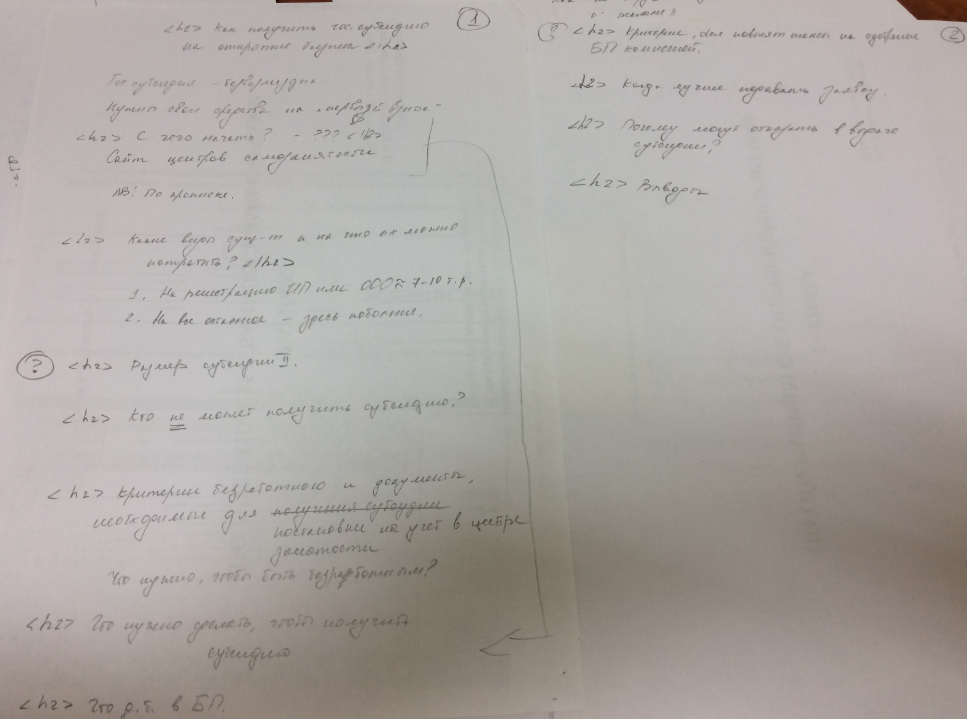 1
<h2> Как получить гос. субсидию
на открытие бизнеса <h2>
Гос субсидия - безвозмездна.
Нужны свои средства на "первый взнос"
<h2> С чего начать? - ??? <h2>
Сайт центров самозанятости
NB! По прописке.
<h2> Какие виды суц-т и на что их можно
потратить? <h2>
1. На регистрацию ИП или ООО ≈ 7-10 т.р.
2. На все остальное - здесь побольше.
? <h2> Размер субсидии II.
<h2> Кто не может получить субсидию?
<h2> Критерии безработного и документы,
необходимые для получения субсидии
постановки на учет в центре
занятости
Что нужно, чтобы быть безработным?
<h2> Что нужно сделать, чтобы получить
субсидию
<h2> Что д.б. в БП.
2
? <h2> Критерии, повлият на одобрение
БП комиссией.
<h2> Когда лучше подавать заявку.
<h2> Почему могут отказать в выдаче
субсидии?
<h2> Выводы